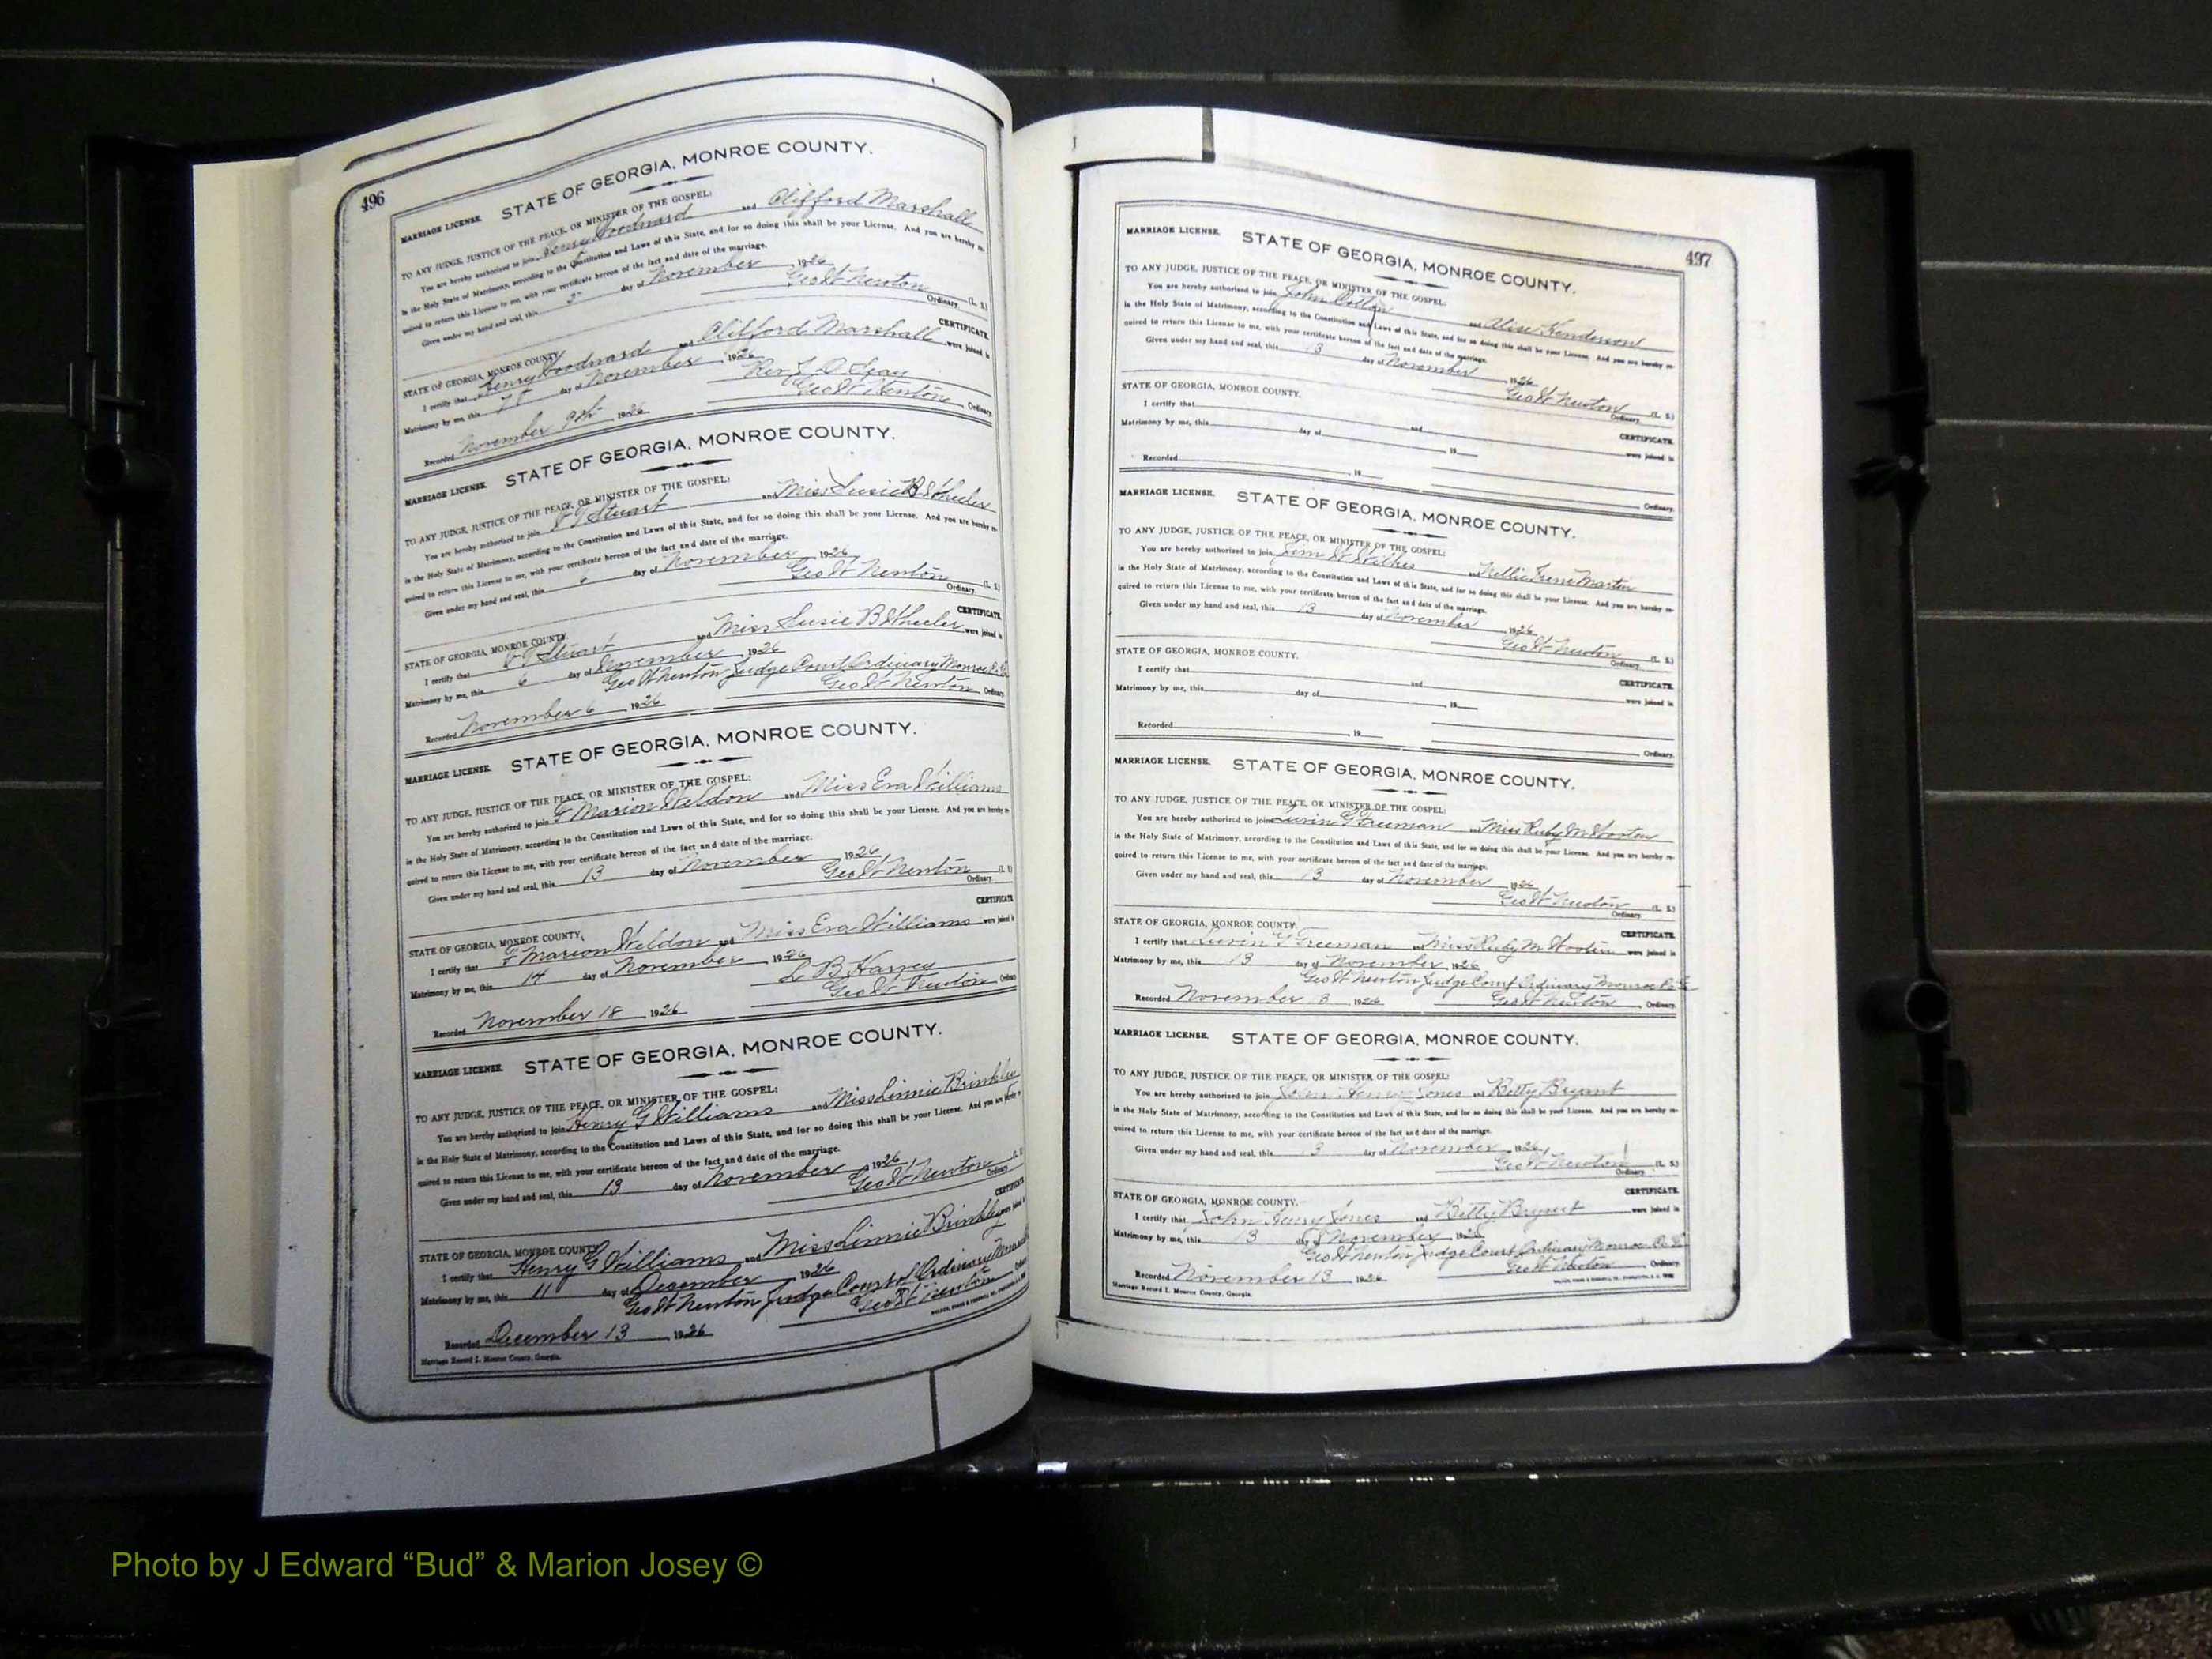 496
MARRIAGE LICENSE. STATE OF GEORGIA, MONROE COUNTY.
TO ANY JUDGE, JUSTICE OF THE PEACE, OR MINISTER OF THE GOSPEL:
You are hereby authorized to join Henry Woodward and Clifford Marshall
in the Holy State of Matrimony, according to the Constitution and Laws of this State, and for so doing this shall be your License. And you are hereby re-
quired to return this License to me, with your certificate hereon of the fact and date of the marriage.
Given under my hand and seal, this day of November 1926
Geo W Newton (L. S.)
Ordinary.
CERTIFICATE.
STATE OF GEORGIA, MONROE COUNTY.
I certify that Henry Woodward and Clifford Marshall were joined in
Matrimony by me, this day of November 1926
Rev.
Recorded November 9th 1926 Geo W Newton Ordinary.
MARRIAGE LICENSE. STATE OF GEORGIA, MONROE COUNTY.
TO ANY JUDGE, JUSTICE OF THE PEACE, OR MINISTER OF THE GOSPEL:
You are hereby authorized to join Stuart and Miss Susie B Wheeler
in the Holy State of Matrimony, according to the Constitution and Laws of this State, and for so doing this shall be your License. And you are hereby re-
quired to return this License to me, with your certificate hereon of the fact and date of the marriage.
Given under my hand and seal, this 6 day of November 1926
Geo W Newton (L. S.)
Ordinary.
CERTIFICATE.
STATE OF GEORGIA, MONROE COUNTY.
I certify that Stuart and Miss Susie B Wheeler were joined in
Matrimony by me, this 6 day of November 1926
Geo W Newton Judge Court Ordinary Monroe Co Ga
Recorded November 6 1926 Geo W Newton Ordinary.
MARRIAGE LICENSE. STATE OF GEORGIA, MONROE COUNTY.
TO ANY JUDGE, JUSTICE OF THE PEACE, OR MINISTER OF THE GOSPEL:
You are hereby authorized to join F Marion Weldon and Miss Eva Williams
in the Holy State of Matrimony, according to the Constitution and Laws of this State, and for so doing this shall be your License. And you are hereby re-
quired to return this License to me, with your certificate hereon of the fact and date of the marriage.
Given under my hand and seal, this 13 day of November 1926
Geo W Newton (L. S.)
Ordinary.
CERTIFICATE.
STATE OF GEORGIA, MONROE COUNTY.
I certify that F Marion Weldon and Miss Eva Williams were joined in
Matrimony by me, this 14 day of November 1926
L B Harvey
Recorded November 18 1926 Geo W Newton Ordinary
MARRIAGE LICENSE. STATE OF GEORGIA, MONROE COUNTY.
TO ANY JUDGE, JUSTICE OF THE PEACE, OR MINISTER OF THE GOSPEL:
You are hereby authorized to join Henry G Williams and Miss Linnie Brinkley
in the Holy State of Matrimony, according to the Constitution and Laws of this State, and for so doing this shall be your License. And you are hereby re-
quired to return this License to me, with your certificate hereon of the fact and date of the marriage.
Given under my hand and seal, this 13 day of November 1926
Geo W Newton
Ordinary.
CERTIFICATE.
STATE OF GEORGIA, MONROE COUNTY.
I certify that Henry G Williams and Miss Linnie Brinkley were joined in
Matrimony by me, this 11 day of December 1926
Geo W Newton Judge Court of Ordinary Monroe
Recorded December 13 1926 Geo W Newton
Marriage Record I. Monroe County, Georgia.
497
MARRIAGE LICENSE. STATE OF GEORGIA, MONROE COUNTY.
TO ANY JUDGE, JUSTICE OF THE PEACE, OR MINISTER OF THE GOSPEL:
You are hereby authorized to join John and Alise Henderson
in the Holy State of Matrimony, according to the Constitution and Laws of this State, and for so doing this shall be your License. And you are hereby re-
quired to return this License to me, with your certificate hereon of the fact and date of the marriage.
Given under my hand and seal, this 13 day of November 1926
Geo W Newton (L. S.)
Ordinary.
CERTIFICATE.
STATE OF GEORGIA, MONROE COUNTY.
I certify that and were joined in
Matrimony by me, this day of 19
Recorded 19 Ordinary.
MARRIAGE LICENSE. STATE OF GEORGIA, MONROE COUNTY.
TO ANY JUDGE, JUSTICE OF THE PEACE, OR MINISTER OF THE GOSPEL:
You are hereby authorized to join Jim W Wilkes and Nellie Irene Martin
in the Holy State of Matrimony, according to the Constitution and Laws of this State, and for so doing this shall be your License. And you are hereby re-
quired to return this License to me, with your certificate hereon of the fact and date of the marriage.
Given under my hand and seal, this 13 day of November 1926
Geo W Newton (L. S.)
Ordinary.
CERTIFICATE.
STATE OF GEORGIA, MONROE COUNTY.
I certify that and were joined in
Matrimony by me, this day of 19
Recorded 19 Ordinary.
MARRIAGE LICENSE. STATE OF GEORGIA, MONROE COUNTY.
TO ANY JUDGE, JUSTICE OF THE PEACE, OR MINISTER OF THE GOSPEL:
You are hereby authorized to join G Freeman and Miss Ruby M Wooten
in the Holy State of Matrimony, according to the Constitution and Laws of this State, and for so doing this shall be your License. And you are hereby re-
quired to return this License to me, with your certificate hereon of the fact and date of the marriage.
Given under my hand and seal, this 13 day of November 1926
Geo W Newton (L. S.)
Ordinary.
CERTIFICATE.
STATE OF GEORGIA, MONROE COUNTY.
I certify that G Freeman and Miss Ruby M Wooten were joined in
Matrimony by me, this 13 day of November 1926
Geo W Newton Judge Court Ordinary Monroe Co Ga
Recorded November 13 1926 Geo W Newton Ordinary.
MARRIAGE LICENSE. STATE OF GEORGIA, MONROE COUNTY.
TO ANY JUDGE, JUSTICE OF THE PEACE, OR MINISTER OF THE GOSPEL:
You are hereby authorized to join John Henry Jones and Betty Bryant
in the Holy State of Matrimony, according to the Constitution and Laws of this State, and for so doing this shall be your License. And you are hereby re-
quired to return this License to me, with your certificate hereon of the fact and date of the marriage.
Given under my hand and seal, this 13 day of November 1926
Geo W Newton (L. S.)
Ordinary.
CERTIFICATE.
STATE OF GEORGIA, MONROE COUNTY.
I certify that John Henry Jones and Betty Bryant were joined in
Matrimony by me, this 13 day of November 1926
Geo W Newton Judge Court Ordinary Monroe Co Ga
Recorded November 13 1926 Geo W Newton Ordinary.
Marriage Record I. Monroe County, Georgia.
Photo by J Edward “Bud” & Marion Josey ©